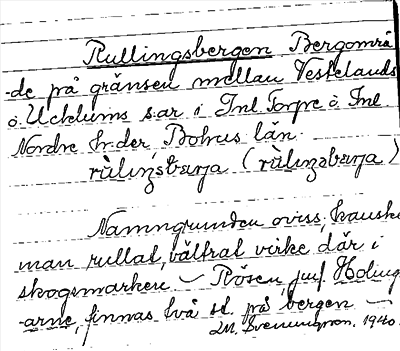 Rullingsbergen Bergområ
-de på gränsen mellan Vestelands
o. Ucklums s:ar i Inl. Torpe o. Inl.
Nordre h:der, Bohus län.
Namngrunden oviss, kanske
man rullat, vältrat virke där i
skogsmarken. – Rösen, jmf. Holmg
-arne, finnas två st. på bergen –
1940.